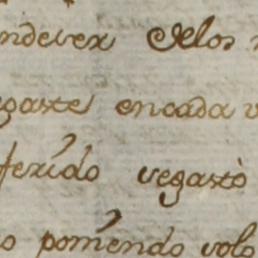 ndever delos
garte encada v
ferido vegartò
o pomendo volo